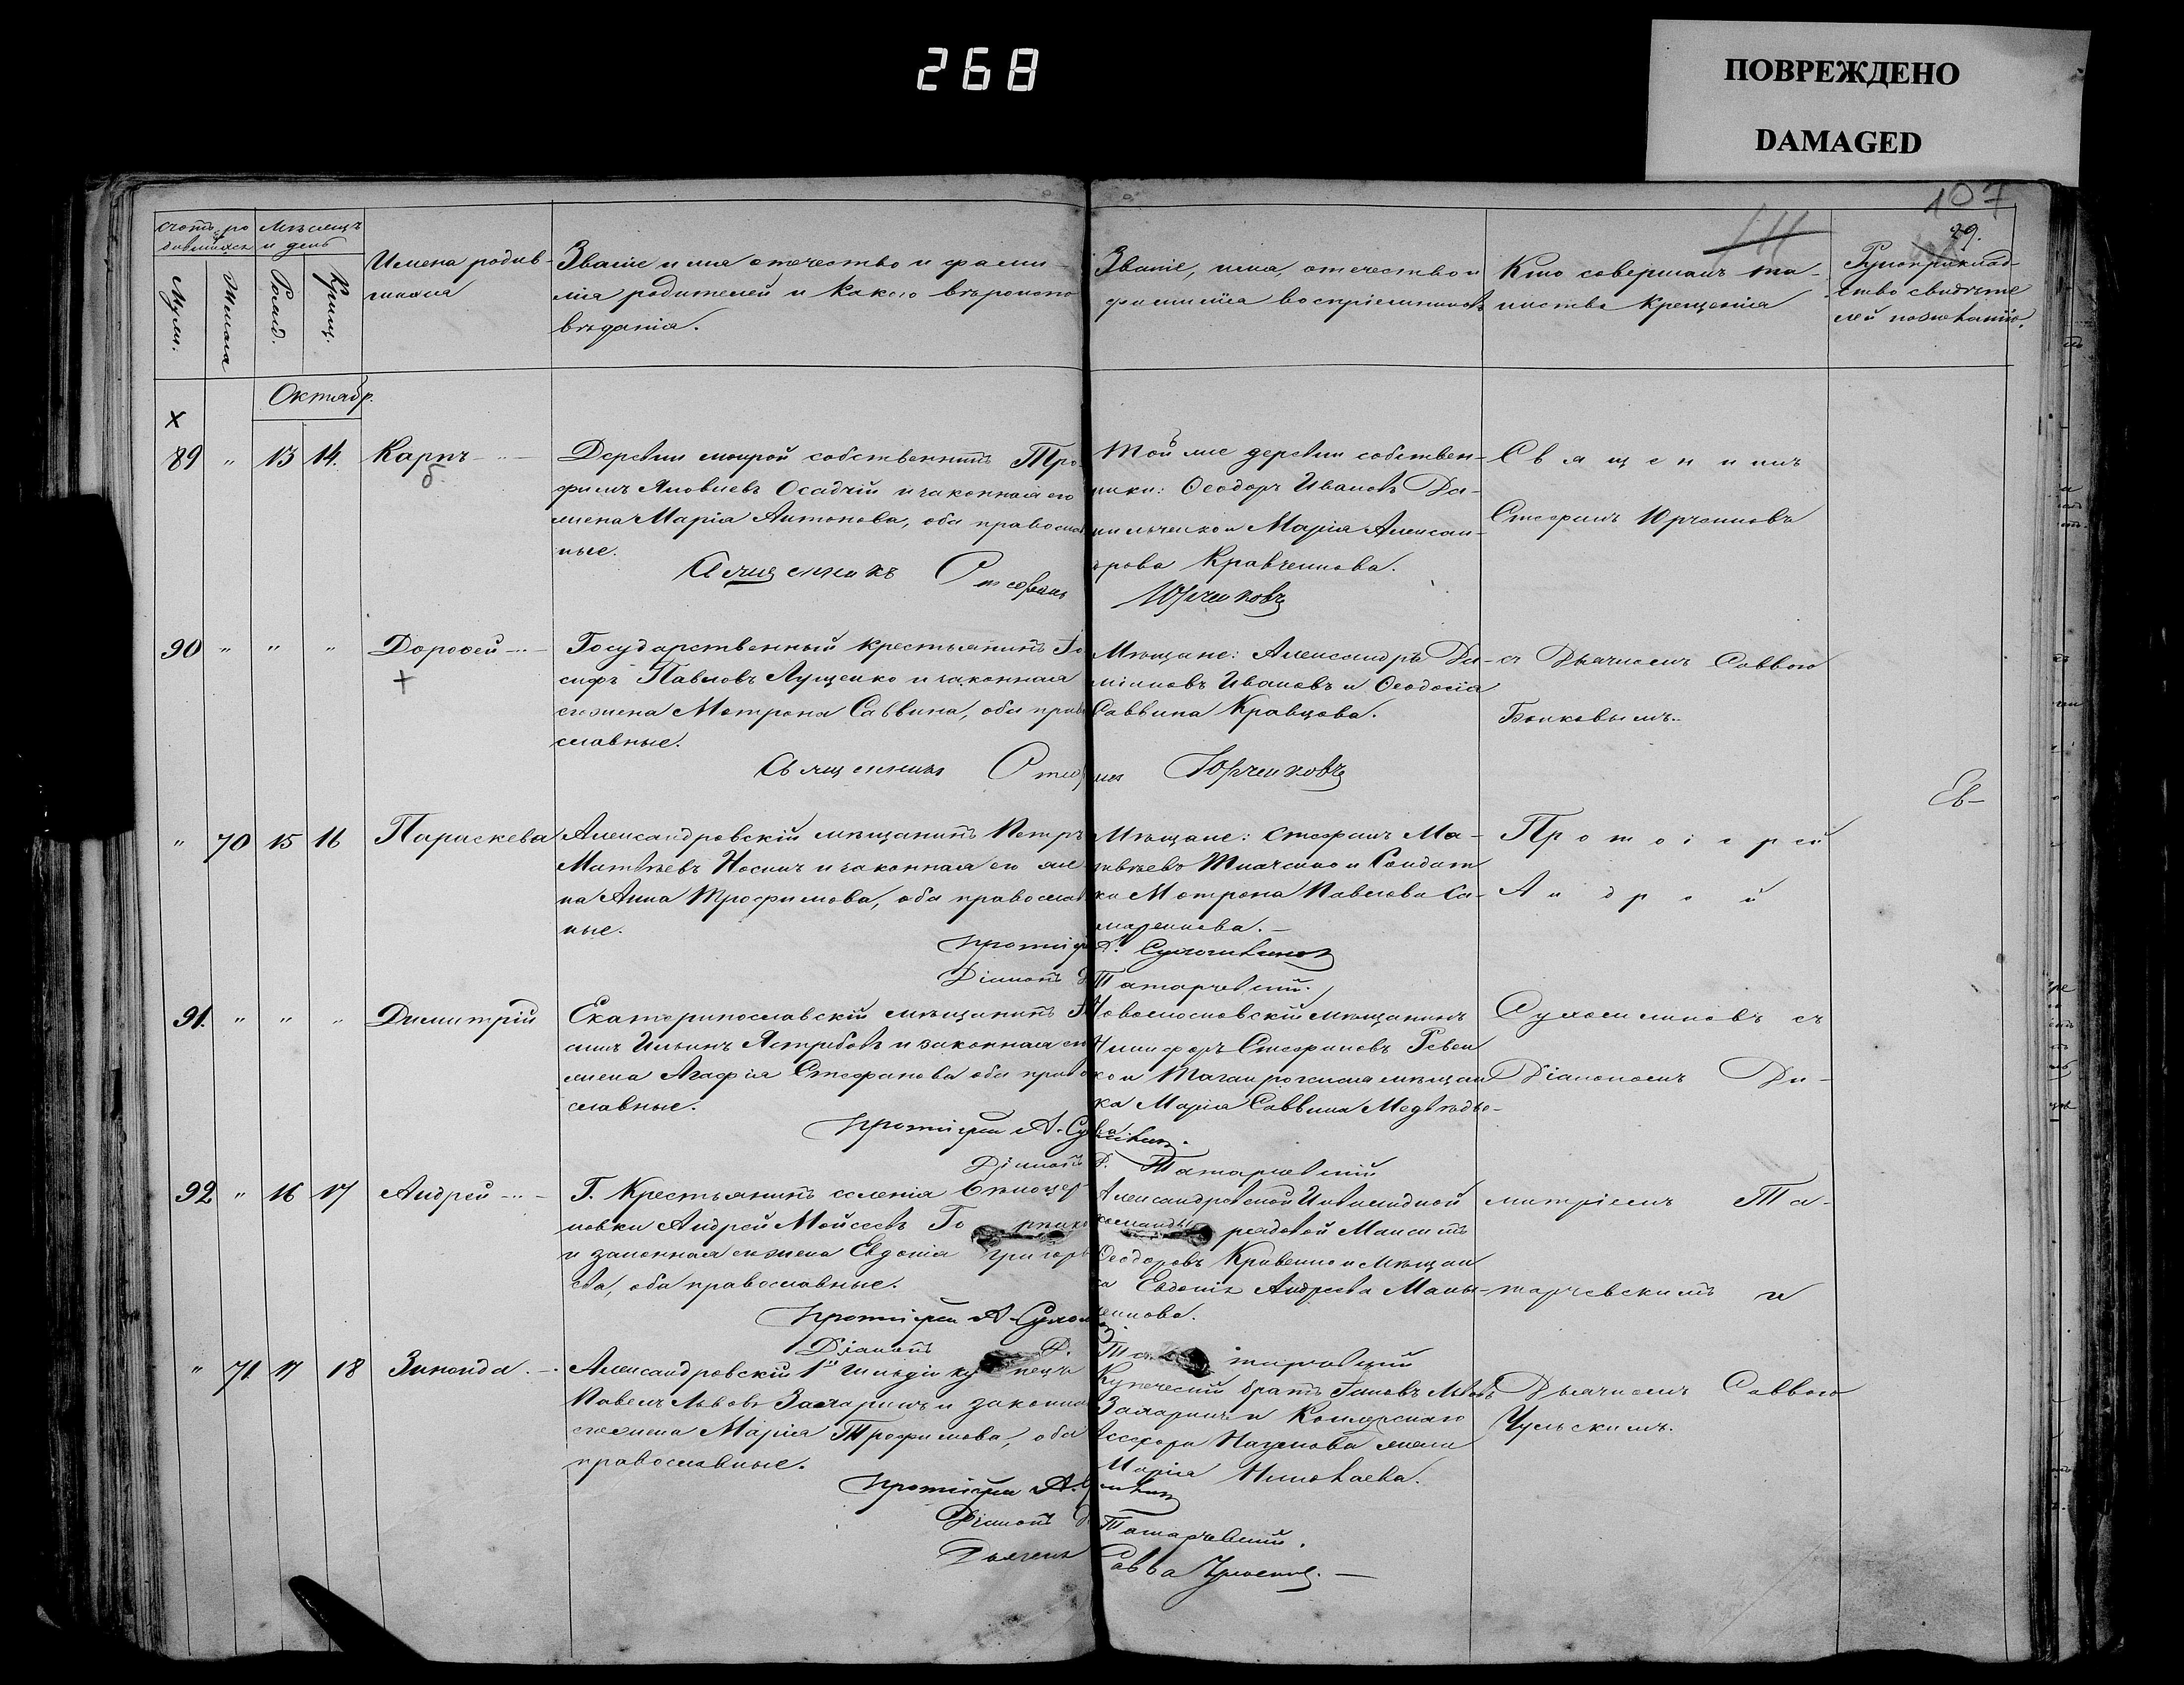 268
ПОВРЕЖДЕНО
DAMAGED
107
29.
Счотъ ро
дившихся
Мѣсяцъ
и день
Мужч.
Женска
Рожд.
Крещ.
Имена родив-
шихся
Званіе имя отечество и фами-
лія родителей и какого вѣроиспо
вѣданія.
Званіе, имя, отечество и
фамилія воспріемниковъ
Кто совершалъ та-
инство крещенія
Рукоприклад-
ство свидѣте
лей по желанію.
Октябр.
89 " 13 14. Карпъ
Деревни мокрой собственникъ Тро-
фимъ Яковлевъ Осадчій и законная его
жена Марія Антонова, оба правосла
ные.
Священникъ Стефанъ Юрченковъ
Той же деревни собствен-
ники: Ѳеодоръ Ивановъ Да-
нильченко и Марія Алексан-
рова Кравченкова.
Священникъ
Стефанъ Юрченковъ
90 " " " Дороѳей
Государственный крестьянинъ Іо
сифъ Павловъ Лущенко и законная
его жена Мотрона Саввина, оба прав
славные.
Священникъ Юрченковъ
Мѣщане: Александръ Да-
міановъ Ивановъ и Ѳеодосія
Саввина Кравцова.
съ Дьячкомъ Саввою
Бояковымъ.
" 70 15 16 Параскева
Александровскій мѣщанинъ Петръ
Матвѣевъ Носикъ и законная его же
на Анна Трофимова, оба православ
ные.
Мѣщане: Стефанъ Ма-
твѣевъ Ткаченко и Солдат
ка Мотрона Павлова Са-
маренкова.
Протоіерей
Андрей
Діаконъ Татарчевскій.
91. " " " Димитрій
Екатеринославскій мѣщанинъ
Ильинъ Ястребовъ и законная его
жена Агафія Стефанова оба право
славные.
Протоіерей А. Су
Діаконъ Татарчевскій
Новомосковскій мѣщанинъ
Никифоръ Стефановъ Ревен
ко и Таганрогская мѣщан
ка Марія Саввина Медвѣдь-
Сухомлиновъ съ
Діакономъ Ди-
92 " 16 17 Андрей
Г. Крестьянинъ селенія Бѣноцер
ковки Андрей Мойсеевъ
и законная его жена Евдокія Григорь
ева, оба православные.
Протоіерей А. Сухом
Діаконъ
Александровской Инвалидной
команды рядовой Максимъ
Ѳеодоровъ Кривенко и мѣщан
ка Евдокія Андреева Маны-
ченкова.
митріемъ Та-
тарчевскимъ и
" 71. 17 18 Зинаида
Александровскій 1й гильдіи купецъ
Павелъ Львовъ Захаринъ и законна
его жена Марія Трофимова, оба
православные.
Протоіерей А.
Діаконъ Татарчевскій.
Дьячекъ Савва
Купеческій братъ Іаковъ Львовъ
Захаринъ и Колежскаго
Ассесора Наумова жена
Марія Николаева.
Дьячкомъ Саввою
Чульскимъ.